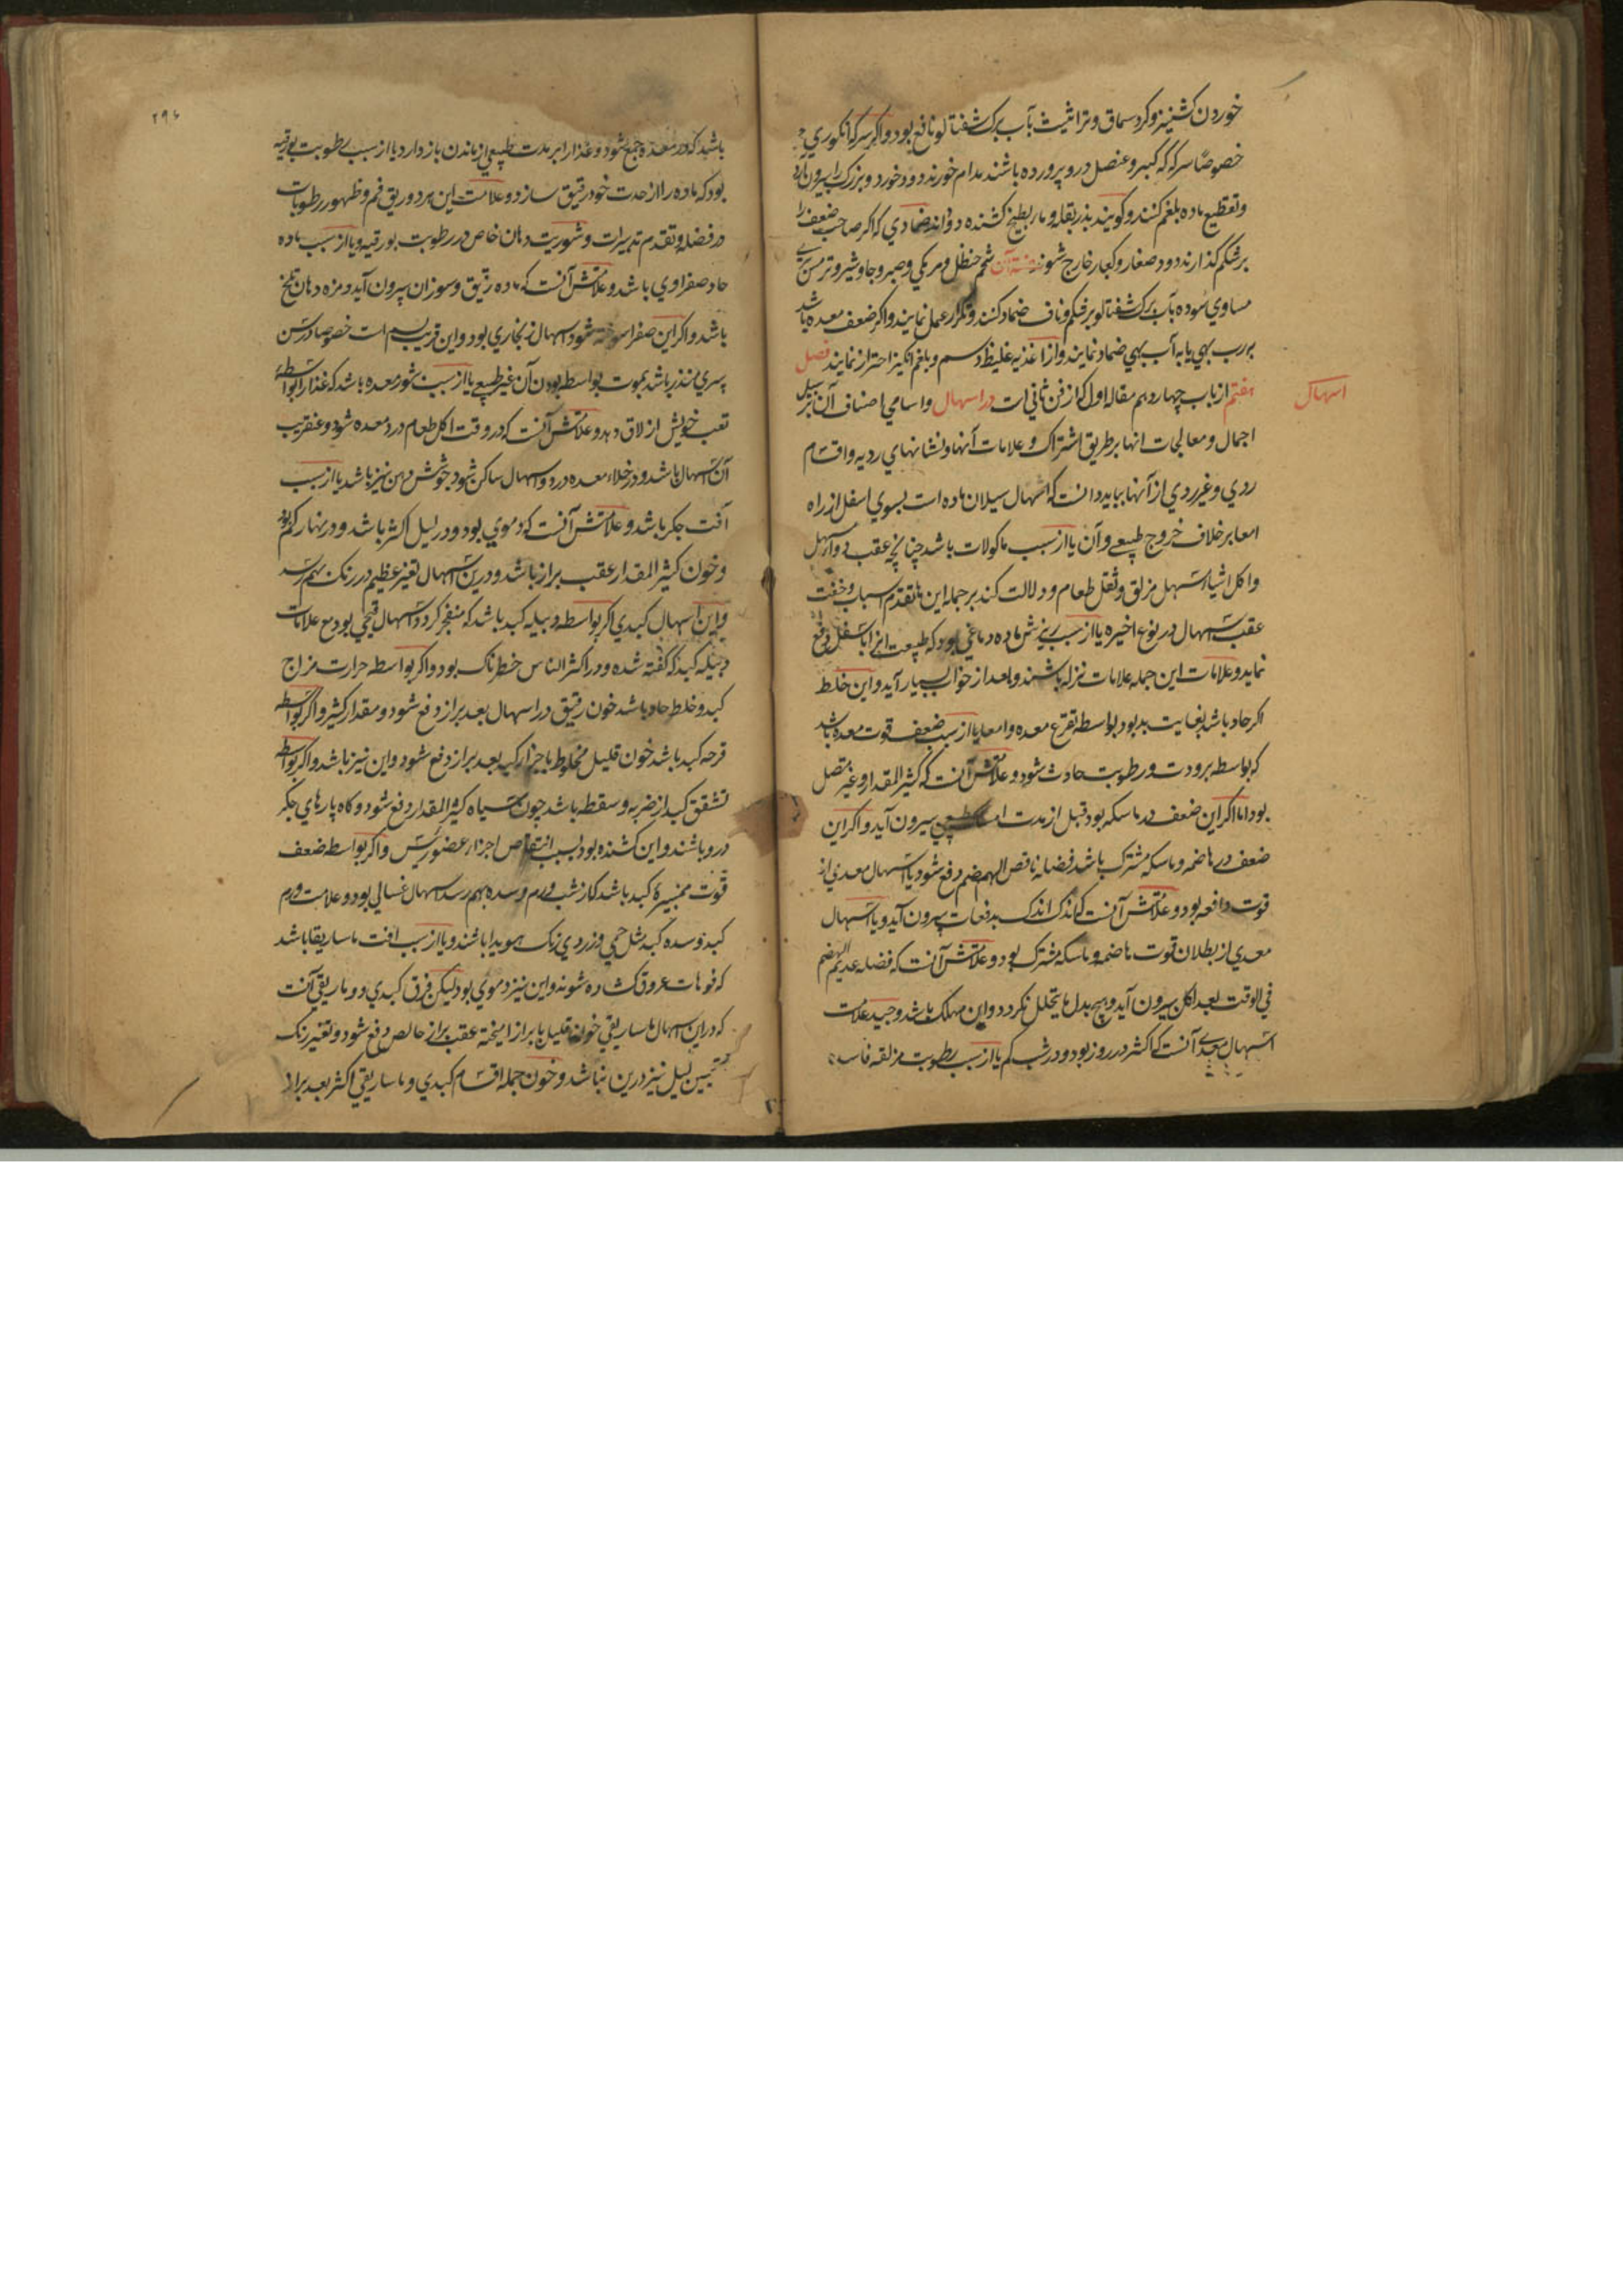 خوردن کشنیز و کرد سماق و تراثیث بآب برک شفتالو نافع بود و اکر سرکه انکوری
خصوصًا سرکه که کبر و عنصل درو پرورده باشند مدام خورند دود خورد و بزرک را بیرون آرد
و تقطیع ماده بلغم کنند و کویند بذر بقله و مار بطیخ کشنده دوداند ضمادی که اکر صاحب ضعف را
بر شکم کذارند دود صغار و کبار خارج شوند شحم حنظل و مر مکی و صبر و جاوشیر و ترمس
مساوی سوده بآب برک شفتالو بر شکم و ناف ضماد کنند و تکرار عمل نمایند و اکر ضعف معده باشد
برب بهی یا به آب بهی ضماد نمایند و از اغذیه غلیظ و دسم و بلغم انکیز احتراز نمایند فصل
اسهال
هفتم از باب چهاردهم مقاله اول که از فن ثانی است در اسهال و اسامی اصناف آن بر سبیل
اجمال و معالجات انها بر طریق اشتراک و علامات آنها و نشانهای ردیه و اقسام
ردی و غیر ردی از آنها بباید دانست که اسهال سیلان ماده است بسوی اسفل از راه
امعا بر خلاف خروج طبیعی و آن یا از سبب ماکولات باشد چنانچه عقب دوا مسهل
و اکل اشیاء مسهل مزلق و ثقل طعام و دلالت کند بر جمله این ها تقدم اسباب و خفت
عقب اسهال در نوع اخیره یا از سبب ریزش ماده دماغی بود که طبیعت انرا باسفل دفع
نماید و علامات این جمله علامات نزله باشند و بعد از خواب بسیار آید و این خلط
اکر حاد باشد بغایت بد بود بواسطه تقرح معده و امعا یا از سبب ضعف قوت معده باشد
که بواسطه برودت و رطوبت حادث شود و علامتش آنست که کثیر المقدار و غیر متصل
بود اما اکر این ضعف در ماسکه بود قبل از مدت بیرون آید و اکر این
ضعف در هاضمه و ماسکه مشترک باشد فضله ناقص الهضم دفع شود یا اسهال معدی از
قوت دافعه بود و علامتش آنست که اندک اندک بدفعات بیرون آید و یا اسهال
معدی از بطلان قوت هاضمه و ماسکه مشترک بود و علامتش آنست که فضله عدیم الهضم
فی الوقت بعد اکل بیرون آید و هیچ بدل ما یتحلل نکردد و این مهلک باشد و جید علامت
اسهال معدی آنست که اکثر در روز بود و در شب کم یا از سبب رطوبت مزلقه فاسده
۲۹۶
باشد که در معده جمع شود و غذا را بر مدت طبیعی از ماندن باز دارد یا از سبب رطوبت بورقیه
بود که ماده را از حدت خود رقیق سازد و علامت این هر دو ریق فم و ظهور رطوبات
در فضله و تقدم تدبیرات و شوریت دهان خاص در رطوبت بورقیه و یا از سبب ماده
حاد صفراوی باشد و علامتش آنست که ماده رقیق و سوزان بیرون آید و مزه دهان تلخ
باشد و اکر این صفرا سوخته شود اسهال زنجاری بود و این قریب بسم است خصوصا در سن
پسری منذر باشد بموت بواسطه بودن آن غیر طبیعی یا از سبب بثور معده باشد که غذا را بواسطه
تعب خویش از لاق دهد و علامتش آنست که در وقت اکل طعام درد معده شود و عنقریب
آن اسهال باشد و در خلاء معده درد و اسهال ساکن شود و جوشش دهن نیز باشد یا از سبب
آفت جکر باشد و علامتش آنست که دموی بود و در لیل اکثر باشد و در نهار کم
و خون کثیر المقدار عقب براز باشد و درین اسهال تغیر عظیم در رنک بهم رسد
و این اسهال کبدی اکر بواسطه دبیله کبد باشد که منفجر کردد اسهال قیحی بود مع علامات
دبیله کبد که کفته شده و در اکثر الناس خطرناک بود و اکر بواسطه حرارت مزاج
کبد و خلط حاد باشد خون رقیق در اسهال بعد براز دفع شود و مقدار کثیر و اکر بواسطه
قرحه کبد باشد خون قلیل مخلوط باجزا رکیه بعد براز دفع شود و این نیز باشد و اکر بواسطه
تشقق کبد از ضربه و سقطه باشد خون سیاه کثیر المقدار دفع شود و کاه پارهای جکر
درو باشند و این کشنده بود بسبب انتقاص اجزاء عضو رئیس و اکر بواسطه ضعف
قوت ممیزهٔ کبد باشد که از شب ورم و سده بهم رسد اسهال غسالی بود و علامت ورم
کبد و سده کبد مثل حمی و زردی رنک هویدا باشند و یا از سبب افت ماساریقا باشد
که فوهات عروق کشاده شوند و این نیز دموی بود لیکن فرق کبدی و ماریقی آنست
که در این اسهال ماساریقی خون قلیل با براز امیخته عقب براز خالص دفع شود و تغیر رنک
لیل نیز درین نباشد و خون جمله اقسام کبدی و ماساریقی اکثر بعد براز